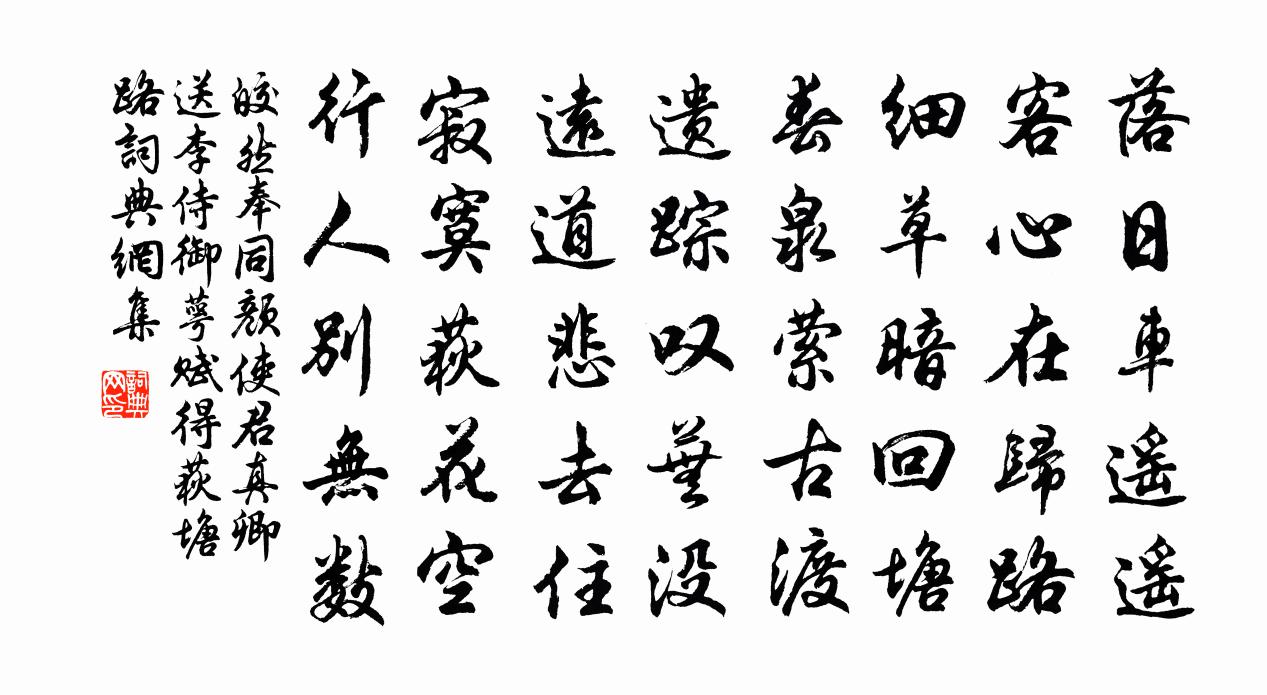 落日車遥遥
客心在歸路
细草暗回塘
春泉萦古渡
遗踪叹蕪没
遠道悲去住
寂寞荻花空
行人別無数
皎然奉同顔使君真卿
送李侍御萼賦得荻塘
路詞典網集
詞典网印